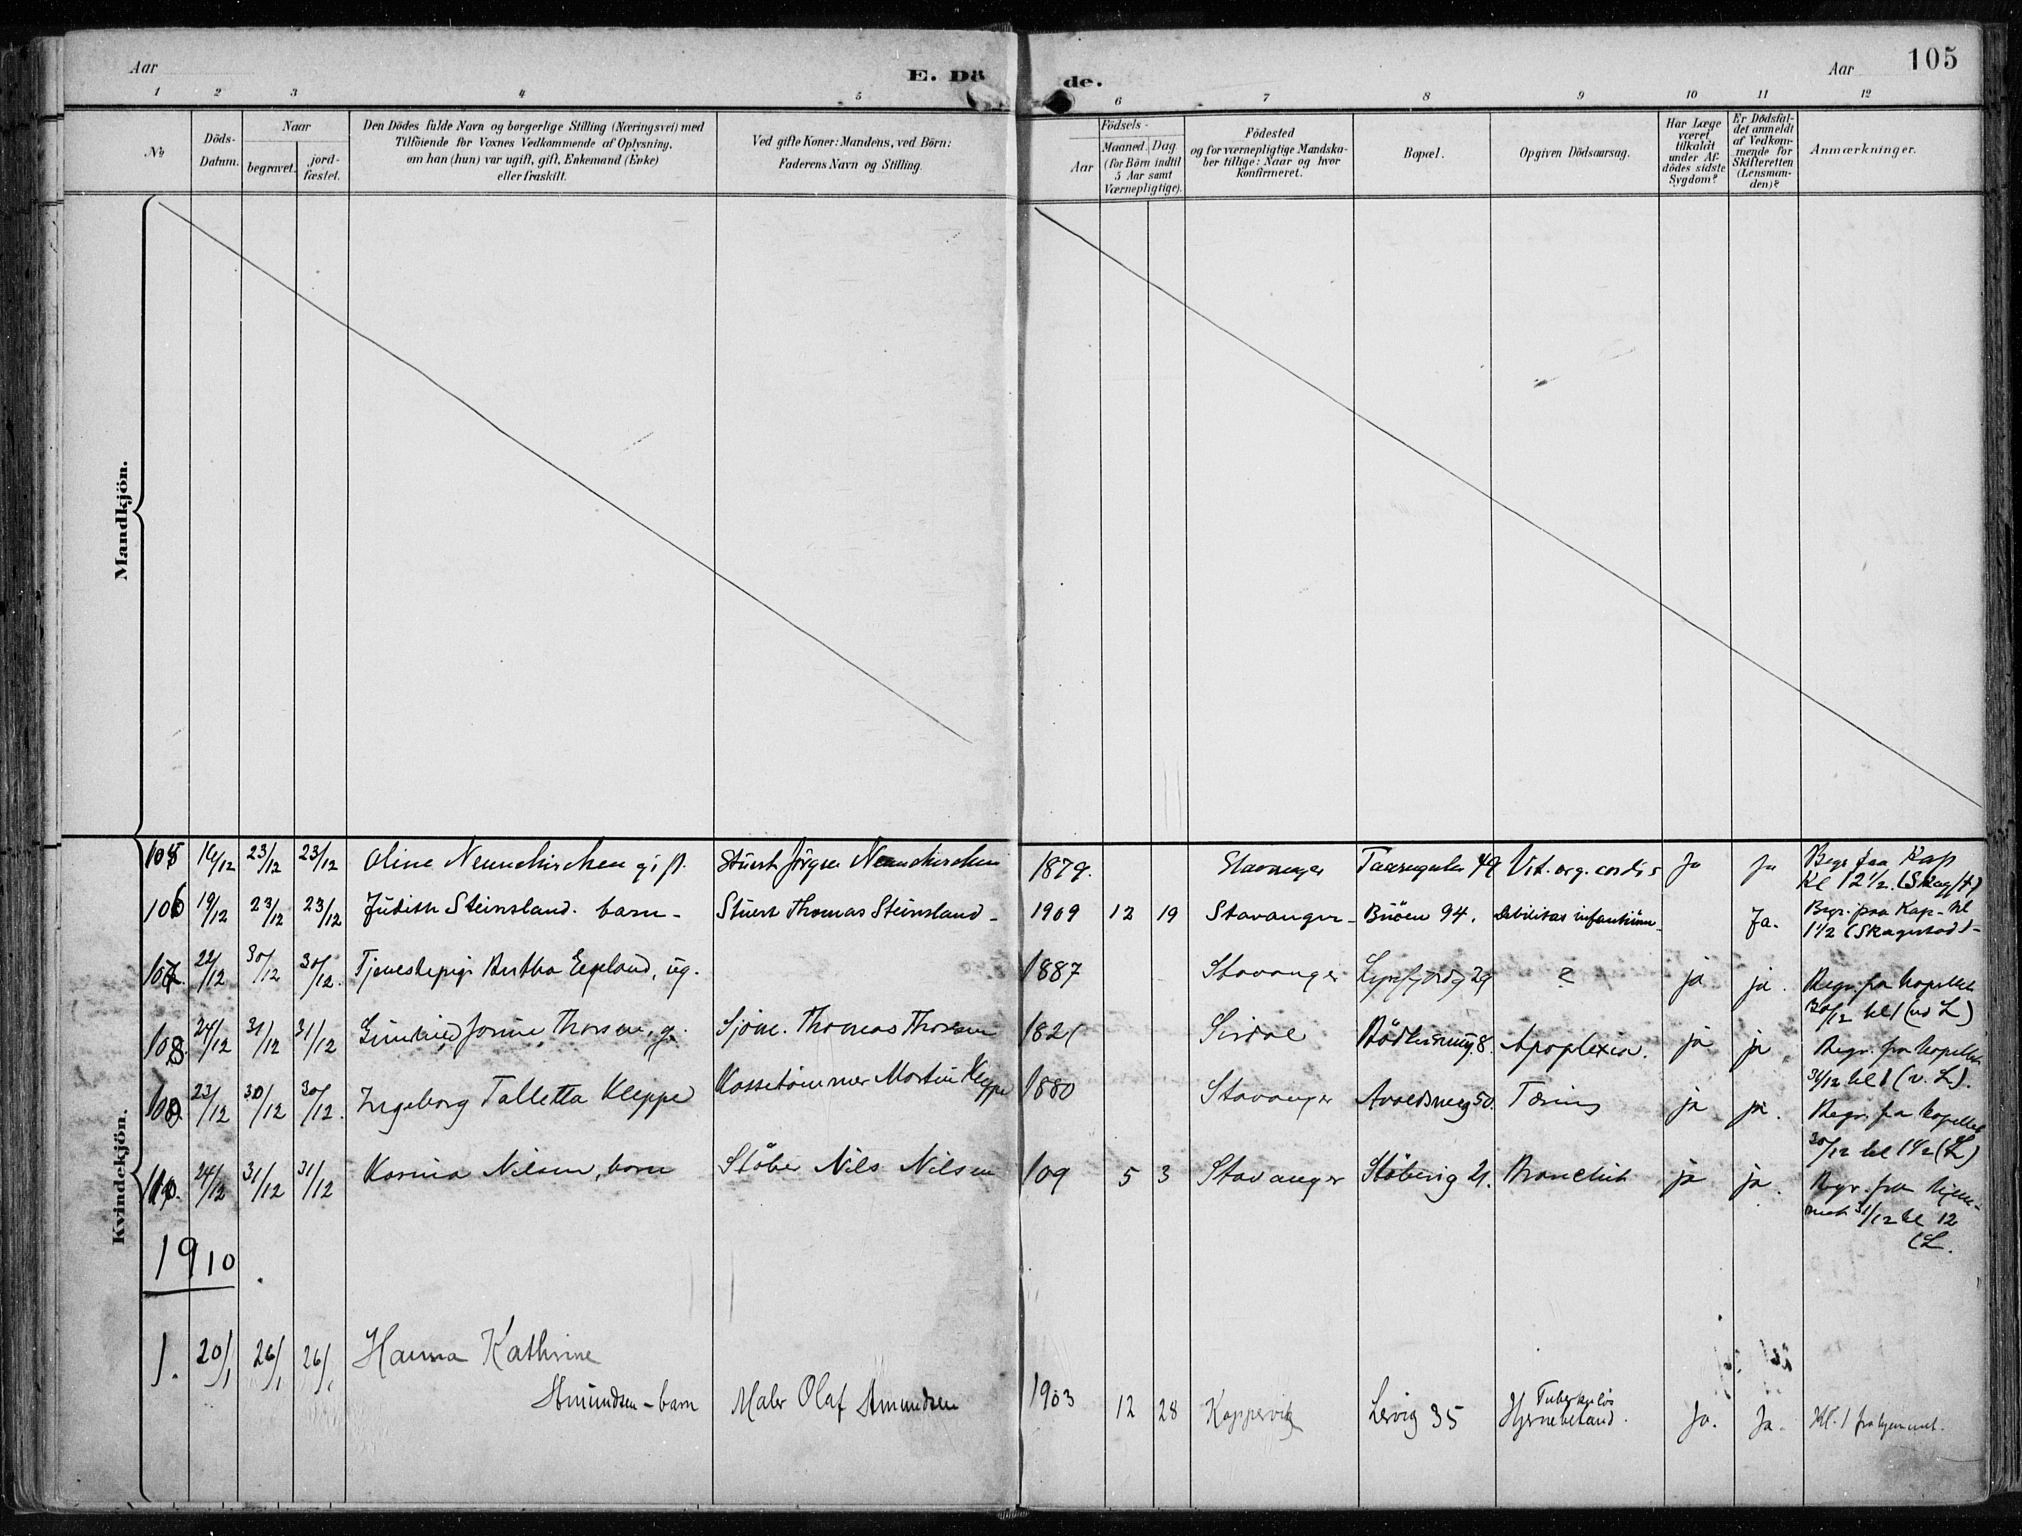 105
Aar
E. Dö
de.
Aar
1 2 3 4 5 6 7 8 9 10 11 12
No
Döds-
Datum.
Naar
begravet.
jord-
fæstet.
Den Dödes fulde Navn og borgerlige Stilling (Næringsvei) med
Tilföiende for Voxnes Vedkommende af Oplysning,
om han (hun) var ugift, gift, Enkemand (Enke)
eller fraskilt.
Ved gifte Koner: Mandens, ved Börn:
Faderens Navn og Stilling.
Aar
Födsels-
Maaned. Dag.
(for Börn indtil
5 Aar samt
Værnepligtige).
Födested
og for værnepligtige Mandska-
ber tillige: Naar og hvor
Konfirmeret.
Bopæl.
Opgiven Dödsaarsag.
Har Læge
været
tilkaldt
under Af-
dödes sidste
Sygdom?
Er Dödsfal-
det anmeldt
af Vedkom-
mende for
Skifteretten
(Lensman-
den)?
Anmærkninger.
Mandkjön.
Kvindekjön.
105 16/12 23/12 23/12 Oline Neunekirchen gift. Stuert Jörgen Neunekirchen 1879. Stavanger 49 Vit. org. cordis Ja Ja Begr. fra Kap
Kl 12 1/2. (Skagst)
106 19/12 23/12 23/12 Judith Steinsland. barn - Stuert Thomas Steinsland - 1909 12 19 Stavanger - Buöen 94. debilitas infantium Ja. Begr. fra Kap - kl
1 1/2 (Skagestad) -
107. 22/12 30/12 30/12. Tjenestepige Bertha Egeland, ug. 1887 Stavanger 29 ? ja ja. Begr. fra kapellet
30/12 kl 1 (ved L)
108. 24/12 31/12 31/12 Jorine Thorsen, g. Sjöm. Thomas Thorsen 1821 Sirdal 8. Apoplexia. ja ja. Begr. fra kapellet
31/12 kl 1 (v. L).
109 23/12 30/12 30/12. Ingeborg Talletta Kleppe Kassetömmer Martin Kleppe 1880 Stavanger Avaldsneg 50. Tæring ja ja. Begr. fra kapellet
30/12 kl 1 1/2 (L)
110. 24/12 31/12 31/12 Karina Nilsen, barn Stöber Nils Nilsen 109 5 3 Stavanger Stöberig 21. Bronchit ja ja. Begr. fra hjem-
met 31/12 kl 12
(L.
1910.
1. 20/1 26/1 26/1 Hanna Kathrine
Amundsen - barn Maler Olaf Amundsen 1903 12 28 Koppervik Lervig 35 Tuberkuløs
Hjernebetænd. Ja. Ja. Kl. 1 fra hjemmet.